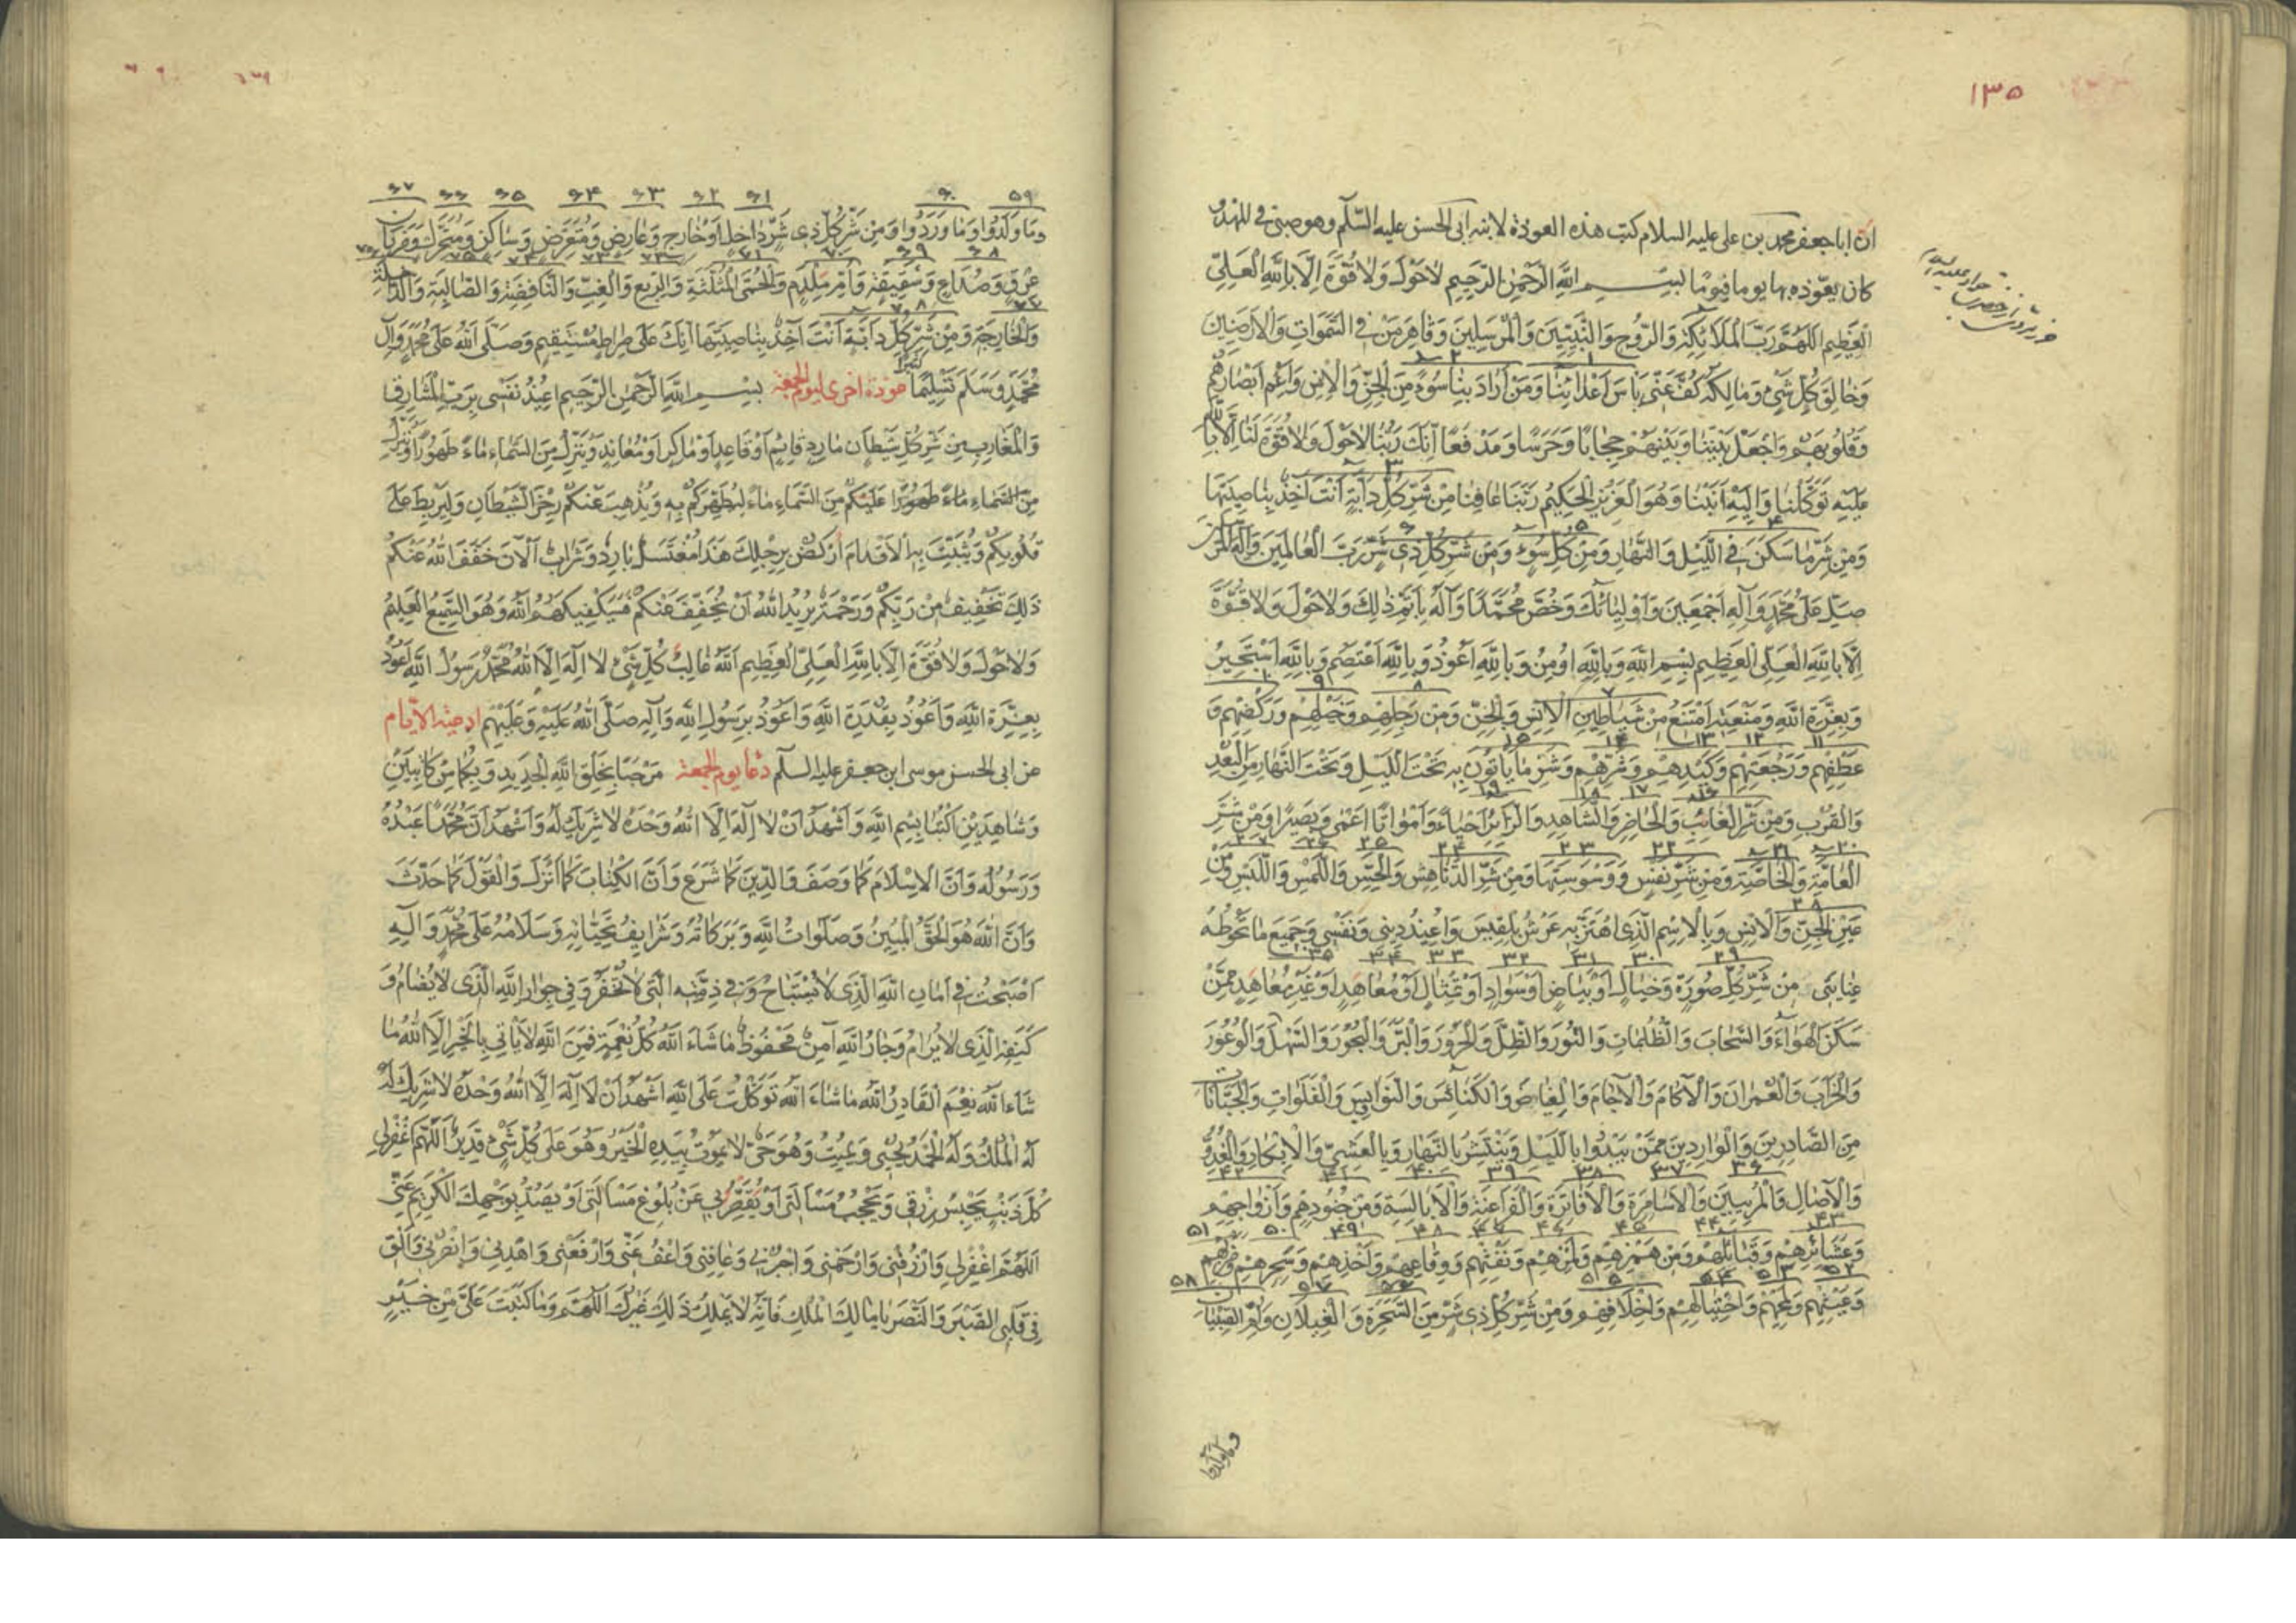 ١٣٥
ان ابا جعفر محمد بن علی علیه السلام کتب هذه العوذة لابنه ابی الحسن علیه السّلم وهو صبیّ فی المهد و
کان یعوّذه بها یوما فیوما بِسْمِ اللّهِ الرَّحْمٰنِ الرَّحِیمِ لاحَوْلَ وَلاٰ قُوَّةَ اِلّا بِاللّهِ الْعَلِیِّ
الْعَظِیمِ اَللّهُمَّ رَبَّ الْمَلاٰئِکَةِ وَالرُّوحِ وَالنَّبِیّٖینَ وَالْمُرْسَلِینَ وَقٰاهِرَ مَنْ فِی السَّمٰوَاتِ وَالْاَرَضِینَ
وَخٰالِقَ کُلِّ شَیْءٍ وَمٰالِکَهُ کُفَّ عَنّی بَاْسَ اَعْدٰائِنٰا وَمَنْ اَرٰادَ بِنٰا سُوءً مِنَ الْجِنِّ وَالْاِنْسِ وَاَعْمِ اَبْصٰارَهُمْ
وَقُلُوبَهُمْ وَاجْعَلْ بَیْنَنٰا وَبَیْنَهُمْ حِجٰابًا وَحَرَسًا وَمَدْفَعًا اِنَّکَ رَبُّنٰا لاٰحَوْلَ وَلاٰ قُوَّةَ لَنٰا اِلّا بِاللّهِ
عَلَیْهِ تَوَکَّلْنٰا وَاِلَیْهِ اَنَبْنٰا وَهُوَ الْعَزِیزُ الْحَکِیمُ رَبَّنٰا عٰافِنٰا مِنْ شَرِّ کُلِّ دٰابَّةٍ اَنْتَ آخِذٌ بِنٰاصِیَتِهٰا
وَمِنْ شَرِّ مٰا سَکَنَ فِی اللَّیْلِ وَالنَّهٰارِ وَمِنْ کُلِّ سُوءٍ وَمِنْ شَرِّ کُلِّ ذِی شَرٍّ رَبَّ الْعٰالَمِینَ وَاِلٰهَ الْمُرْسَلِینَ
صَلِّ عَلٰی مُحَمَّدٍ وَآلِهِ اَجْمَعِینَ وَاَوْلِیٰائِکَ وَخُصَّ مُحَمَّدًا وَآلَهُ بِاَتَمِّ ذٰلِکَ وَلاٰحَوْلَ وَلاٰ قُوَّةَ
اِلّا بِاللّهِ الْعَلِیِّ الْعَظِیمِ بِسْمِ اللّهِ وَبِاللّهِ اُومِنُ وَبِاللّهِ اَعُوذُ وَبِاللّهِ اَعْتَصِمُ وَبِاللّهِ اَسْتَجِیرُ
وَبِعِزَّةِ اللّهِ وَمَنْعَتِهِ اَمْتَنِعُ مِنْ شَیٰاطِینِ الْاِنْسِ وَالْجِنِّ وَمِنْ رَجِلِهِمْ وَخَیْلِهِمْ وَرَکْضِهِمْ وَ
عَطْفِهِمْ وَرَجْعَتِهِمْ وَکَیْدِهِمْ وَشَرِّهِمْ وَشَرِّ مٰا یَاْتُونَ بِهِ تَحْتَ اللَّیْلِ وَتَحْتَ النَّهٰارِ مِنَ الْبُعْدِ
وَالْقُرْبِ وَمِنْ شَرِّ الْغٰائِبِ وَالْحٰاضِرِ وَالشّٰاهِدِ وَالزّٰائِرِ اَحْیٰاءً وَاَمْوٰاتًا اَعْمٰی وَبَصِیرًا وَمِنْ شَرِّ
الْعٰامَّةِ وَالْخٰاصَّةِ وَمِنْ شَرِّ نَفْسٍ وَوَسْوَسَتِهٰا وَمِنْ شَرِّ الدَّنٰاهِشِ وَالْحِسِّ وَاللَّمْسِ وَاللَّبْسِ وَمِنْ
عَیْنِ الْجِنِّ وَالْاِنْسِ وَبِالْاِسْمِ الَّذِی اهْتَزَّ بِهِ عَرْشُ بِلْقِیسَ وَاُعِیذُ دِینِی وَنَفْسِی وَجَمِیعَ مٰا تَحُوطُهُ
عِنٰایَتِی مِنْ شَرِّ کُلِّ صُورَةٍ وَخَیٰالٍ اَوْ بَیٰاضٍ اَوْ سَوٰادٍ اَوْ تِمْثٰالٍ اَوْ مُعٰاهِدٍ اَوْ غَیْرِ مُعٰاهِدٍ مِمَّنْ
سَکَنَ الْهَوٰاءَ وَالسَّحٰابَ وَالظُّلُمٰاتِ وَالنُّورَ وَالظِّلَّ وَالْحَرُورَ وَالْبَرَّ وَالْبُحُورَ وَالسَّهْلَ وَالْوُعُورَ
وَالْخَرٰابَ وَالْعُمْرٰانَ وَالْآکٰامَ وَالْآجٰامَ وَالْغِیٰاضَ وَالْکَنٰائِسَ وَالنَّوٰاوِیسَ وَالْفَلَوٰاتِ وَالْجَبّٰانٰاتِ
مِنَ الصّٰادِرِینَ وَالْوٰارِدِینَ مِمَّنْ یَبْدُوا بِاللَّیْلِ وَیَنْتَشِرُ بِالنَّهٰارِ وَبِالْعَشِیِّ وَالْاِبْکٰارِ وَالْغُدُوِّ
وَالْآصٰالِ وَالْمُرِیبِینَ وَالْاَسٰامِرَةِ وَالْاَفٰاتِرَةِ وَالْفَرٰاعِنَةِ وَالْاَبٰالِسَةِ وَمِنْ جُنُودِهِمْ وَاَزْوٰاجِهِمْ
وَعَشٰائِرِهِمْ وَقَبٰائِلِهِمْ وَمِنْ هَمْزِهِمْ وَلَمْزِهِمْ وَنَفْثِهِمْ وَوِقٰاعِهِمْ وَاَخْذِهِمْ وَسِحْرِهِمْ وَضَرْبِهِمْ
وَعَیْنِهِمْ وَلَمْحِهِمْ وَاحْتِیٰالِهِمْ وَاخْلاٰفِهِمْ وَمِنْ شَرِّ کُلِّ ذِی شَرٍّ مِنَ السَّحَرَةِ وَالْغِیلاٰنِ وَاُمِّ الصِّبْیٰانِ
وما ولدوا
وَمٰا وَلَدُوا وَمٰا وَرَدُوا وَمِنْ شَرِّ کُلِّ ذِی شَرٍّ دٰاخِلٍ اَوْ خٰارِجٍ وَعٰارِضٍ وَمُتَعَرِّضٍ وَسٰاکِنٍ وَمُتَحَرِّکٍ وَضَرَبٰانِ
عِرْقٍ وَصُدٰاعٍ وَشَقِیقَةٍ وَاُمِّ مِلْدَمٍ وَالْحُمَّی الْمُثَلَّثَةِ وَالرِّبْعِ وَالْغِبِّ وَالنّٰافِضَةِ وَالصّٰالِبَةِ وَالدّٰاخِلَةِ
وَالْخٰارِجَةِ وَمِنْ شَرِّ کُلِّ دٰابَّةٍ اَنْتَ آخِذٌ بِنٰاصِیَتِهٰا اِنَّکَ عَلٰی صِرٰاطٍ مُسْتَقِیمٍ وَصَلَّی اللّهُ عَلٰی مُحَمَّدٍ وَآلِ
مُحَمَّدٍ وَسَلَّمَ تَسْلِیمًا کثیرًا عوذة اخری لیوم الجمعة بِسْمِ اللّهِ الرَّحْمٰنِ الرَّحِیمِ اُعِیذُ نَفْسِی بِرَبِّ الْمَشٰارِقِ
وَالْمَغٰارِبِ مِنْ شَرِّ کُلِّ شَیْطٰانٍ مٰارِدٍ قٰائِمٍ اَوْ قٰاعِدٍ اَوْ مٰاکِرٍ اَوْ مُعٰانِدٍ وَیُنَزِّلُ مِنَ السَّمٰاءِ مٰاءً طَهُورًا وَنُنَزِّلُ
مِنَ السَّمٰاءِ مٰاءً طَهُورًا عَلَیْکُمْ مِنَ السَّمٰاءِ مٰاءً لِیُطَهِّرَکُمْ بِهِ وَیُذْهِبَ عَنْکُمْ رِجْزَ الشَّیْطٰانِ وَلِیَرْبِطَ عَلٰی
قُلُوبِکُمْ وَیُثَبِّتَ بِهِ الْاَقْدٰامَ اُرْکُضْ بِرِجْلِکَ هٰذَا مُغْتَسَلٌ بٰارِدٌ وَشَرٰابٌ اَلْآنَ خَفَّفَ اللّهُ عَنْکُمْ
ذٰلِکَ تَخْفِیفٌ مِنْ رَبِّکُمْ وَرَحْمَةٌ یُرِیدُ اللّهُ اَنْ یُخَفِّفَ عَنْکُمْ فَسَیَکْفِیکَهُمُ اللّهُ وَهُوَ السَّمِیعُ الْعَلِیمُ
وَلاٰحَوْلَ وَلاٰ قُوَّةَ اِلّا بِاللّهِ الْعَلِیِّ الْعَظِیمِ اَللّهُ غٰالِبُ کُلِّ شَیْءٍ لاٰ اِلٰهَ اِلَّا اللّهُ مُحَمَّدٌ رَسُولُ اللّهِ اَعُوذُ
بِعِزَّةِ اللّهِ وَاَعُوذُ بِقُدْرَةِ اللّهِ وَاَعُوذُ بِرَسُولِ اللّهِ وَآلِهِ صَلَّی اللّهُ عَلَیْهِ وَعَلَیْهِمْ ادعیة الایّام
عن ابی الحسن موسی ابن جعفر علیه السلم دعا یوم الجمعة مَرْحَبًا بِخَلْقِ اللّهِ الْجَدِیدِ وَبِکُمٰا مِنْ کٰاتِبَیْنِ
وَشٰاهِدَیْنِ اُکْتُبٰا بِسْمِ اللّهِ وَاَشْهَدُ اَنْ لاٰ اِلٰهَ اِلَّا اللّهُ وَحْدَهُ لاٰ شَرِیکَ لَهُ وَاَشْهَدُ اَنَّ مُحَمَّدًا عَبْدُهُ
وَرَسُولُهُ وَاَنَّ الْاِسْلاٰمَ کَمٰا وَصَفَ وَالدِّینَ کَمٰا شَرَعَ وَاَنَّ الْکِتٰابَ کَمٰا اَنْزَلَ وَالْقَوْلَ کَمٰا حَدَّثَ
وَاَنَّ اللّهَ هُوَ الْحَقُّ الْمُبِینُ وَصَلَوٰاتُ اللّهِ وَبَرَکٰاتُهُ وَشَرٰایِفُ تَحِیّٰاتِهِ وَسَلاٰمُهُ عَلٰی مُحَمَّدٍ وَآلِهِ
اَصْبَحْتُ فِی اَمٰانِ اللّهِ الَّذِی لاٰ یُسْتَبٰاحُ وَفِی ذِمَّتِهِ الَّتِی لاٰ تُخْفَرُ وَفِی جِوٰارِ اللّهِ الَّذِی لاٰ یُضٰامُ وَ
کَنَفِهِ الَّذِی لاٰ یُرٰامُ وَجٰارُ اللّهِ آمِنٌ مَحْفُوظٌ مٰا شٰاءَ اللّهُ کُلُّ نِعْمَةٍ فَمِنَ اللّهِ لاٰ یَاْتِی بِالْخَیْرِ اِلَّا اللّهُ مٰا
شٰاءَ اللّهُ نِعْمَ الْقٰادِرُ اللّهُ مٰا شٰاءَ اللّهُ تَوَکَّلْتُ عَلَی اللّهِ اَشْهَدُ اَنْ لاٰ اِلٰهَ اِلَّا اللّهُ وَحْدَهُ لاٰ شَرِیکَ لَهُ
لَهُ الْمُلْکُ وَلَهُ الْحَمْدُ یُحْیِی وَیُمِیتُ وَهُوَ حَیٌّ لاٰ یَمُوتُ بِیَدِهِ الْخَیْرُ وَهُوَ عَلٰی کُلِّ شَیْءٍ قَدِیرٌ اَللّهُمَّ اغْفِرْ لِی
کُلَّ ذَنْبٍ یَحْبِسُ رِزْقِی وَیَحْجُبُ مَسْاَلَتِی اَوْ یُقَصِّرُ بِی عَنْ بُلُوغِ مَسْاَلَتِی اَوْ یَصُدُّ بِوَجْهِکَ الْکَرِیمِ عَنّی
اَللّهُمَّ اغْفِرْ لِی وَارْزُقْنِی وَارْحَمْنِی وَاجْبُرْنِی وَعٰافِنِی وَاعْفُ عَنّی وَارْفَعْنِی وَاهْدِنِی وَانْصُرْنِی وَاَلْقِ
فِی قَلْبِی الصَّبْرَ وَالنَّصْرَ یٰا مٰالِکَ الْمُلْکِ فَاِنَّهُ لاٰ یَمْلِکُ ذٰلِکَ غَیْرُکَ اَللّهُمَّ وَمٰا کَتَبْتَ عَلَیَّ مِنْ خَیْرٍ